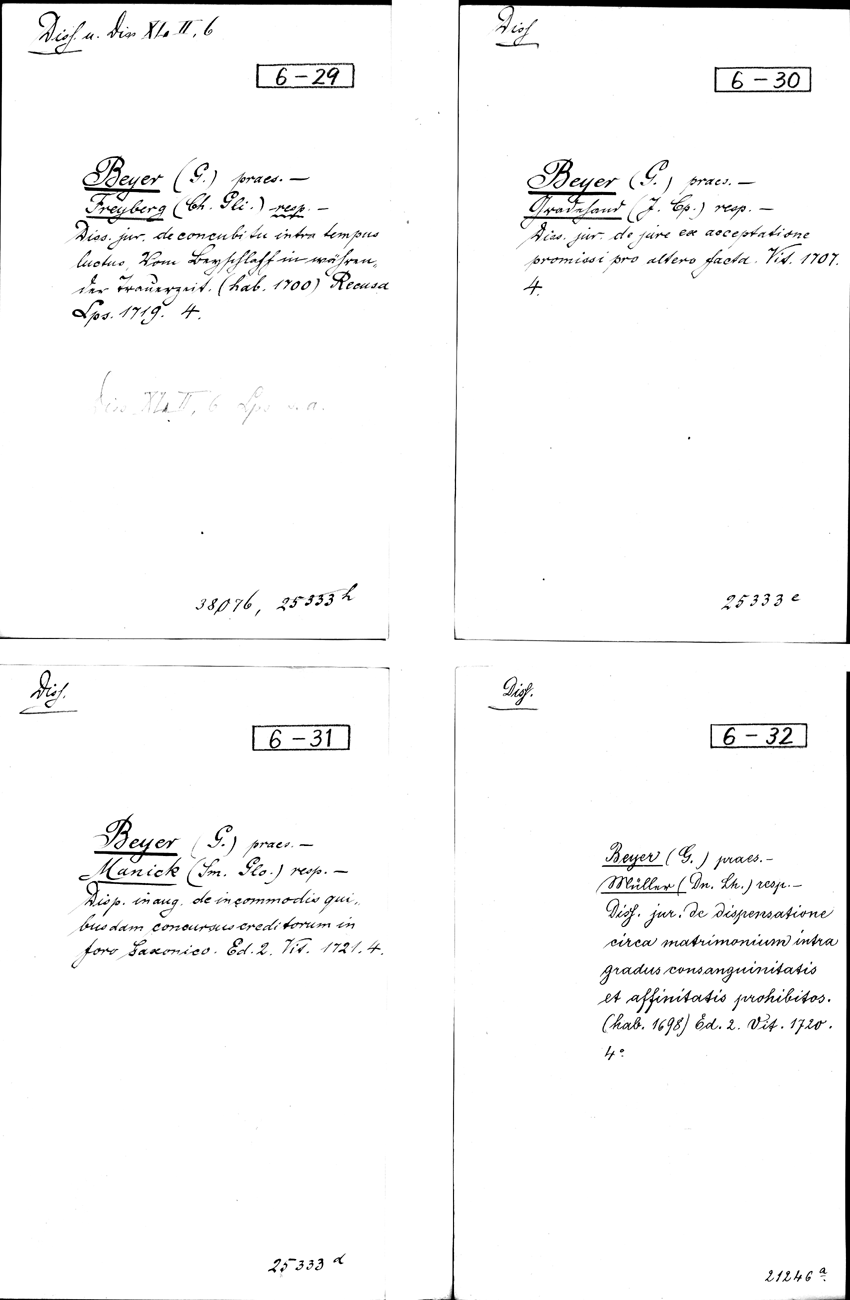 Diss. u. Div XLa II, 6
6-29
Beyer (G.) praes. —
Freyberg (Ch. Gli.) resp. —
Diss. jur. de concubitu intra tempus
luctus, Vom Beyschlaff in währen-
der Trauerzeit. (hab. 1700) Recusa
Lps. 1719. 4.
Div XLa II, 6 Lps s. a.
38076, 25333 h
Diss
6-30
Beyer (G.) praes. —
Gradehand (J. Cp.) resp. —
Diss. jur. de jure ex acceptatione
promissi pro altero facta. Vit. 1707.
4.
25333 e
Diss.
6-31
Beyer (G.) praes. —
Manick (Im. Glo.) resp. —
Disp. inaug. de incommodis qui-
busdam concursus creditorum in
foro Saxonico. Ed. 2. Vit. 1721. 4.
25333 d
Diss.
6-32
Beyer (G.) praes. —
Müller (Dn. Lh.) resp. —
Diss. jur. de dispensatione
circa matrimonium intra
gradus consanguinitatis
et affinitatis prohibitos.
(hab. 1698) Ed. 2. Vit. 1720.
4°
21246 a.